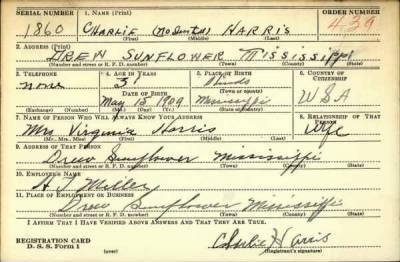 SERIAL NUMBER 1. NAME (Print) ORDER NUMBER
1860 CHARLIE HARRIS 439
(First) (Middle) (Last)
2. ADDRESS (Print)
DREW SUNFLOWER MISSISSIPPI
(Number and street or R. F. D. number) (Town) (County) (State)
3. TELEPHONE 4. AGE IN YEARS 5. PLACE OF BIRTH 6. COUNTRY OF CITIZENSHIP
none 31 Hinds
DATE OF BIRTH (Town or county)
May 15 1909 Mississippi USA
(Exchange) (Number) (Mo.) (Day) (Yr.) (State or country)
7. NAME OF PERSON WHO WILL ALWAYS KNOW YOUR ADDRESS 8. RELATIONSHIP OF THAT PERSON
Mrs Virginia Harris Wife
(Mr., Mrs., Miss) (First) (Middle) (Last)
9. ADDRESS OF THAT PERSON
Drew Sunflower Mississippi
(Number and street or R. F. D. number) (Town) (County) (State)
10. EMPLOYER'S NAME
Miller
11. PLACE OF EMPLOYMENT OR BUSINESS
Drew Sunflower Mississippi
(Number and street or R. F. D. number) (Town) (County) (State)
I AFFIRM THAT I HAVE VERIFIED ABOVE ANSWERS AND THAT THEY ARE TRUE.
REGISTRATION CARD
D. S. S. Form 1 (over) Charlie Harris
(Registrant's signature)